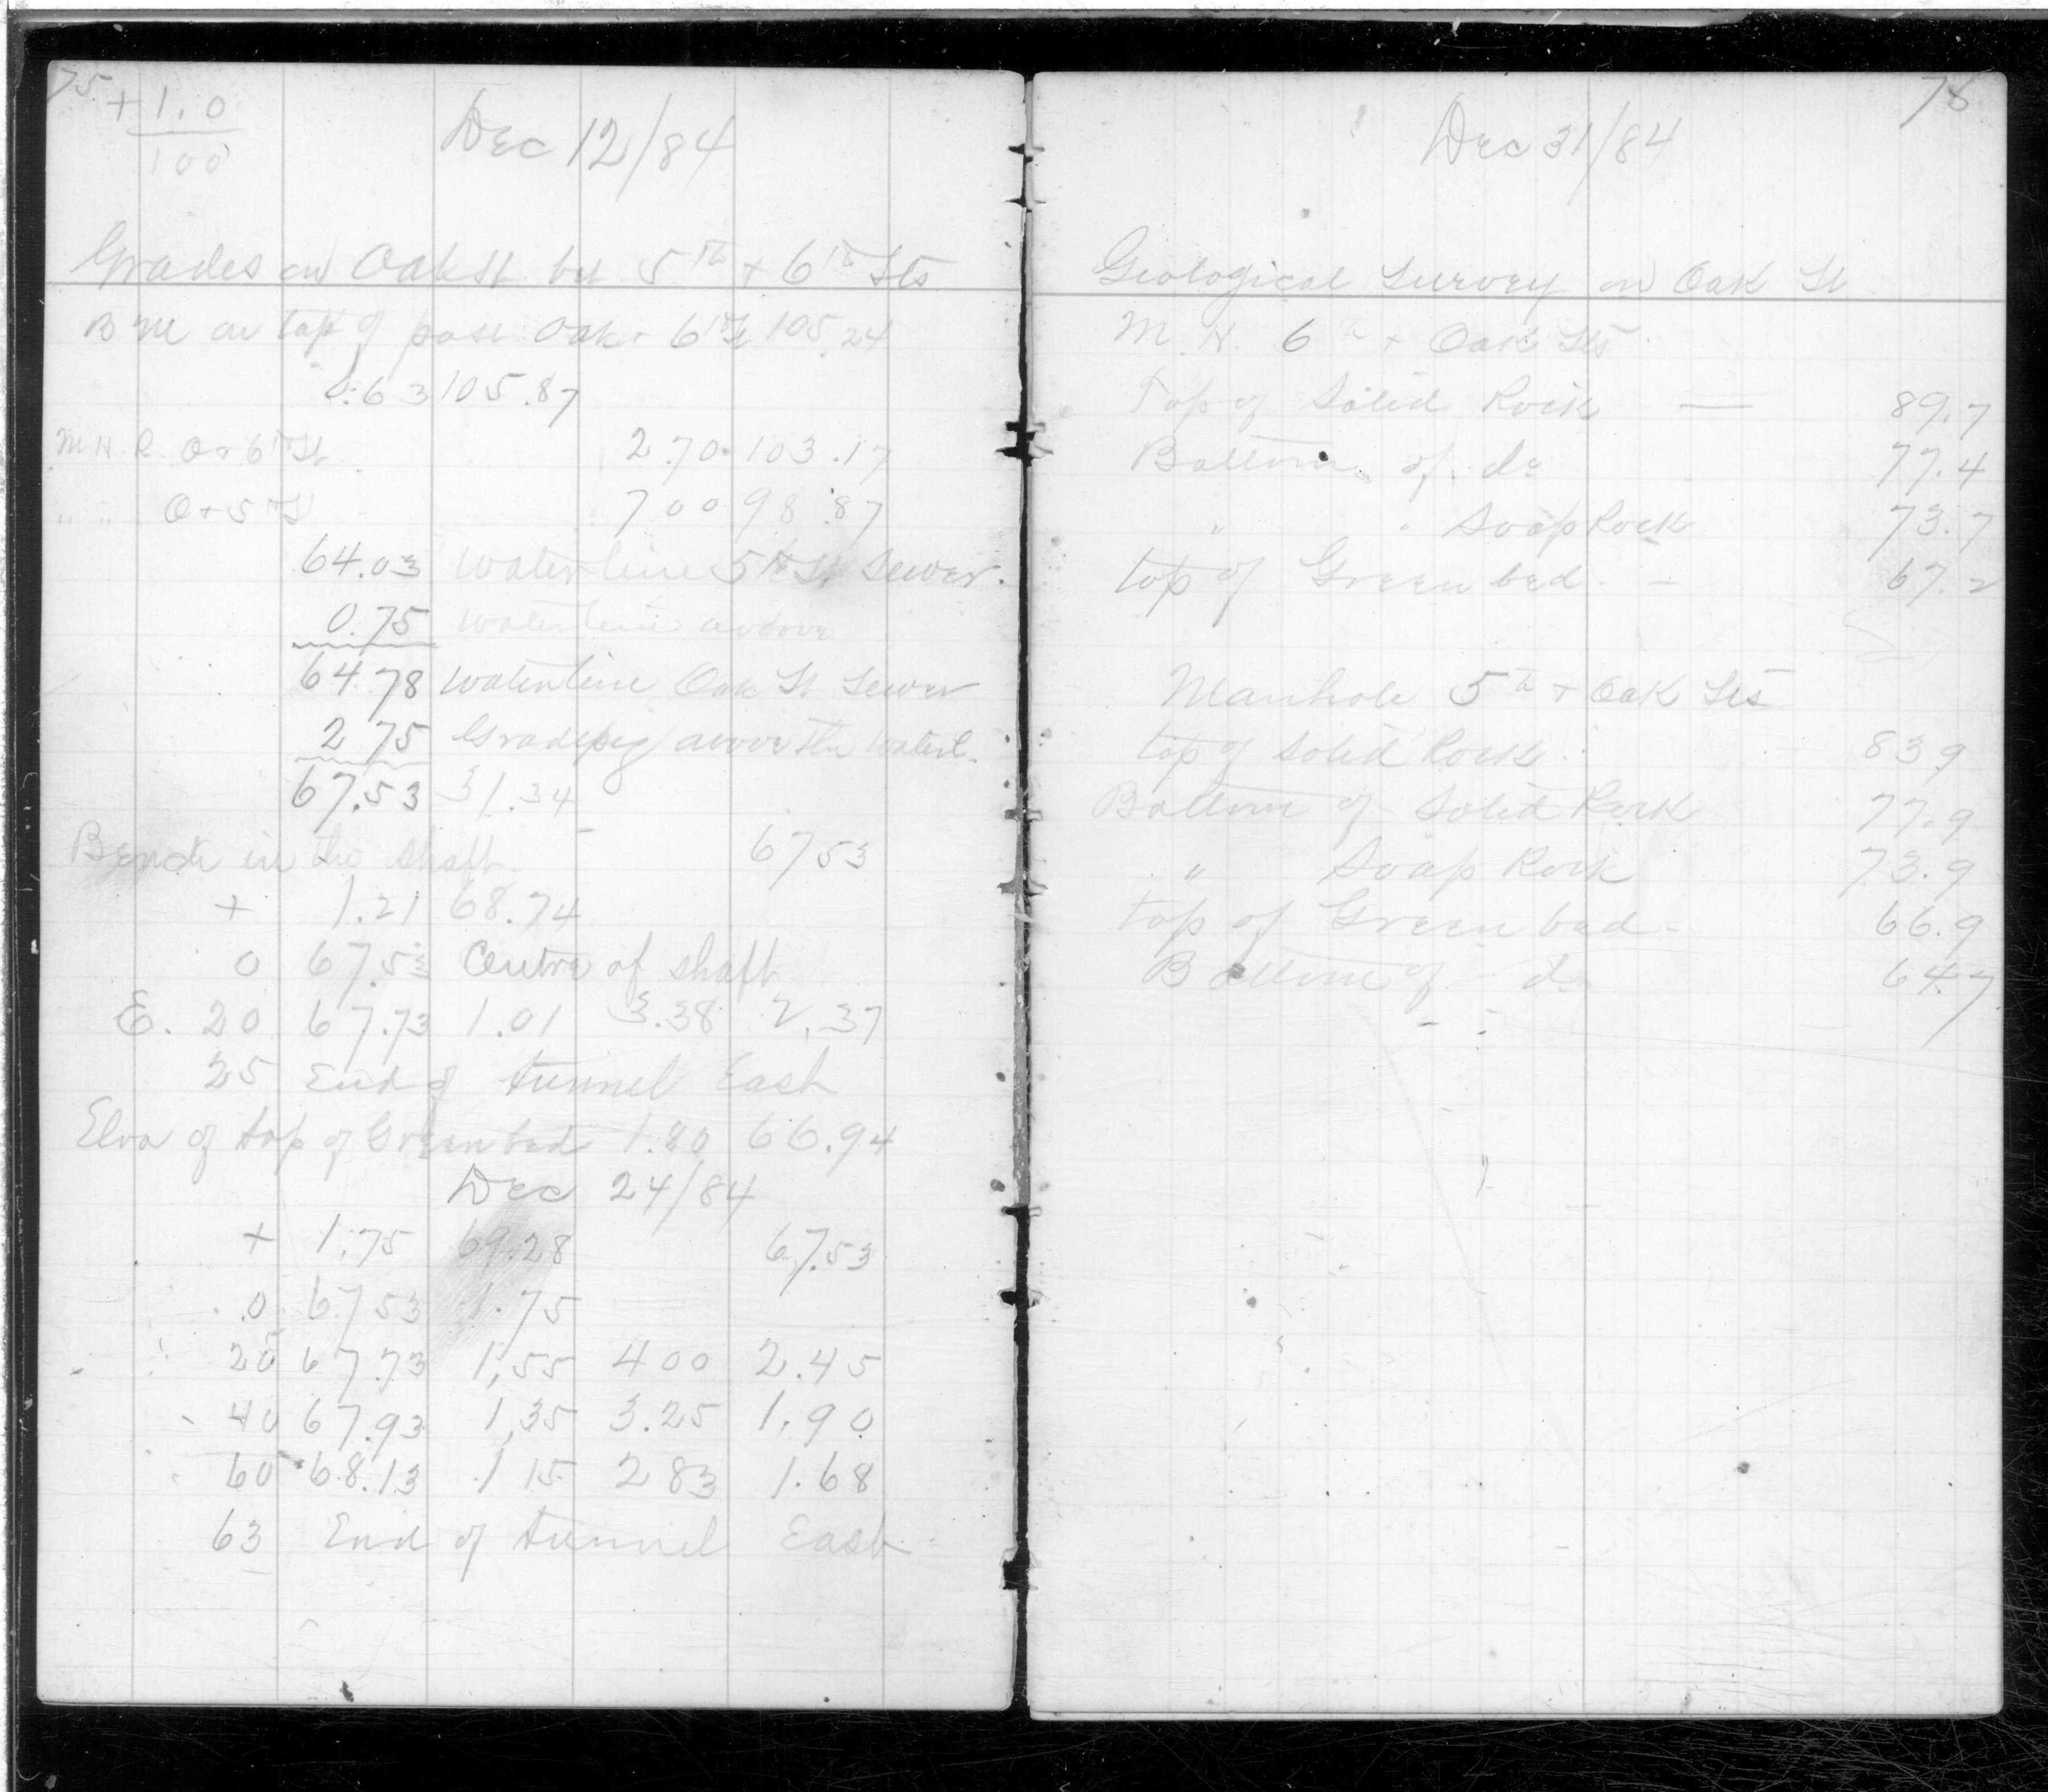 75
+ 1.0
100
Dec 12/84
Grades on Oak St bet 5th + 6th Sts
B M on top of post Oak + 6th St 105.24
0.63 105.87
M H R. O + 6th St 2.70 103.17
" " O + 5th St 7 00 98.87
64.03 Waterline 5th St Sewer.
0.75 waterline above
64.78 Waterline Oak St Sewer
2 75 Gradepeg above the waterl.
67.53 31.34
Bench in the shaft 67 53
+ 1.21 68.74
0 67.53 Centre of shaft
E. 20 67.73 1.01 3.38 2.37
25 End of tunnel East
Elva of top of Green bed 1.80 66.94
Dec 24/84
+ 1.75 69.28 67.53
0 67 53 1.75
20 67.73 1,55 4 00 2.45
40 67.93 1,35 3.25 1.90
60 68.13 1 15 2 83 1.68
63 End of tunnel East
Dec 31/84
Geological Survey on Oak St
M. H. 6th + Oak Sts
Top of Solid Rock — 89.7
Bottom of do 77.4
" " Soap Rock 73.7
top of Green bed - 67.2
Manhole 5th + Oak Sts
top of Solid Rock 83 9
Bottom of Solid Rock 77.9
" Soap Rock 73.9
top of Green bed - 66.9
Bottom of do 64.7